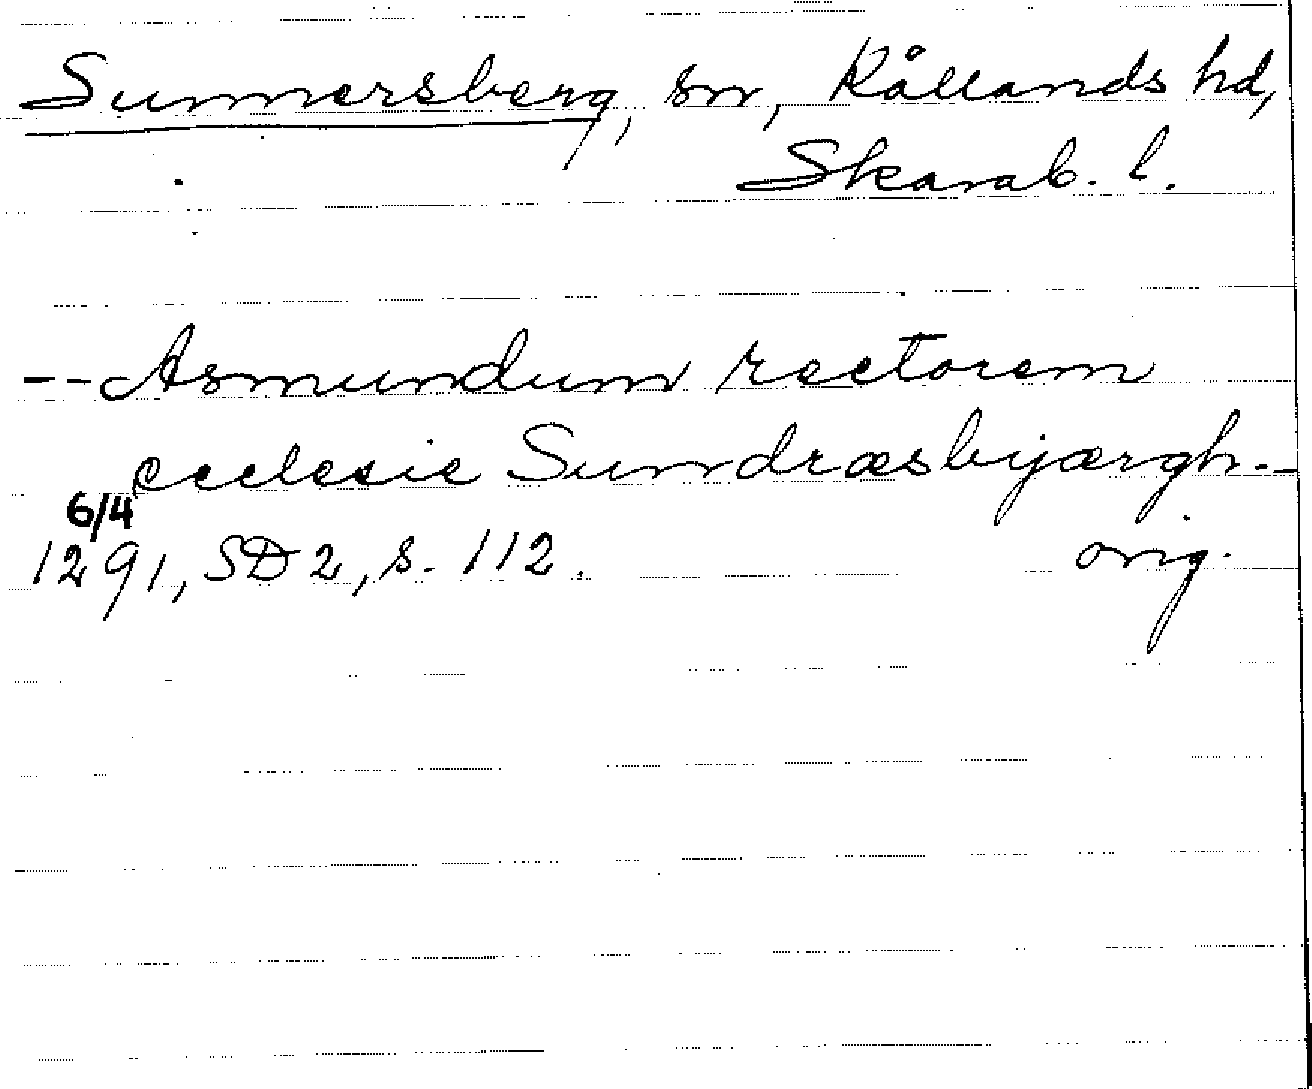 Sunnersberg, sn, Kållands hd,
Skarab. l.
-- Asmundum rectorem
ecclesie Sundræsbyærgh --
6/4
1291, SD 2, s. 112. orig.